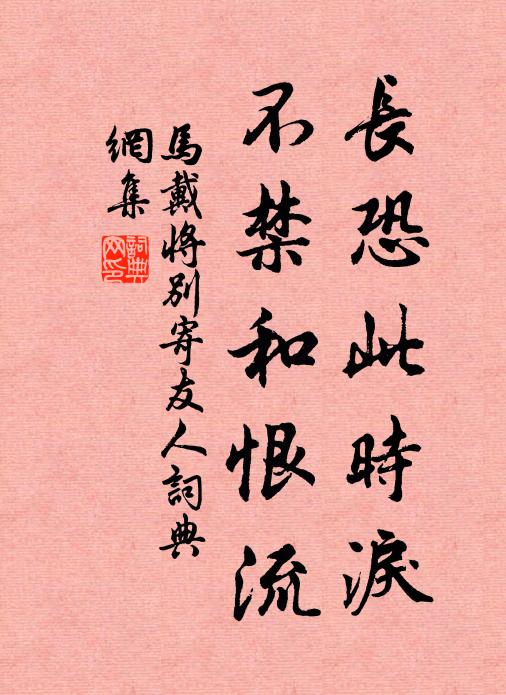 長恐此時淚
不禁和恨流
馬戴將別寄友人詞典
網集
詞典
网印